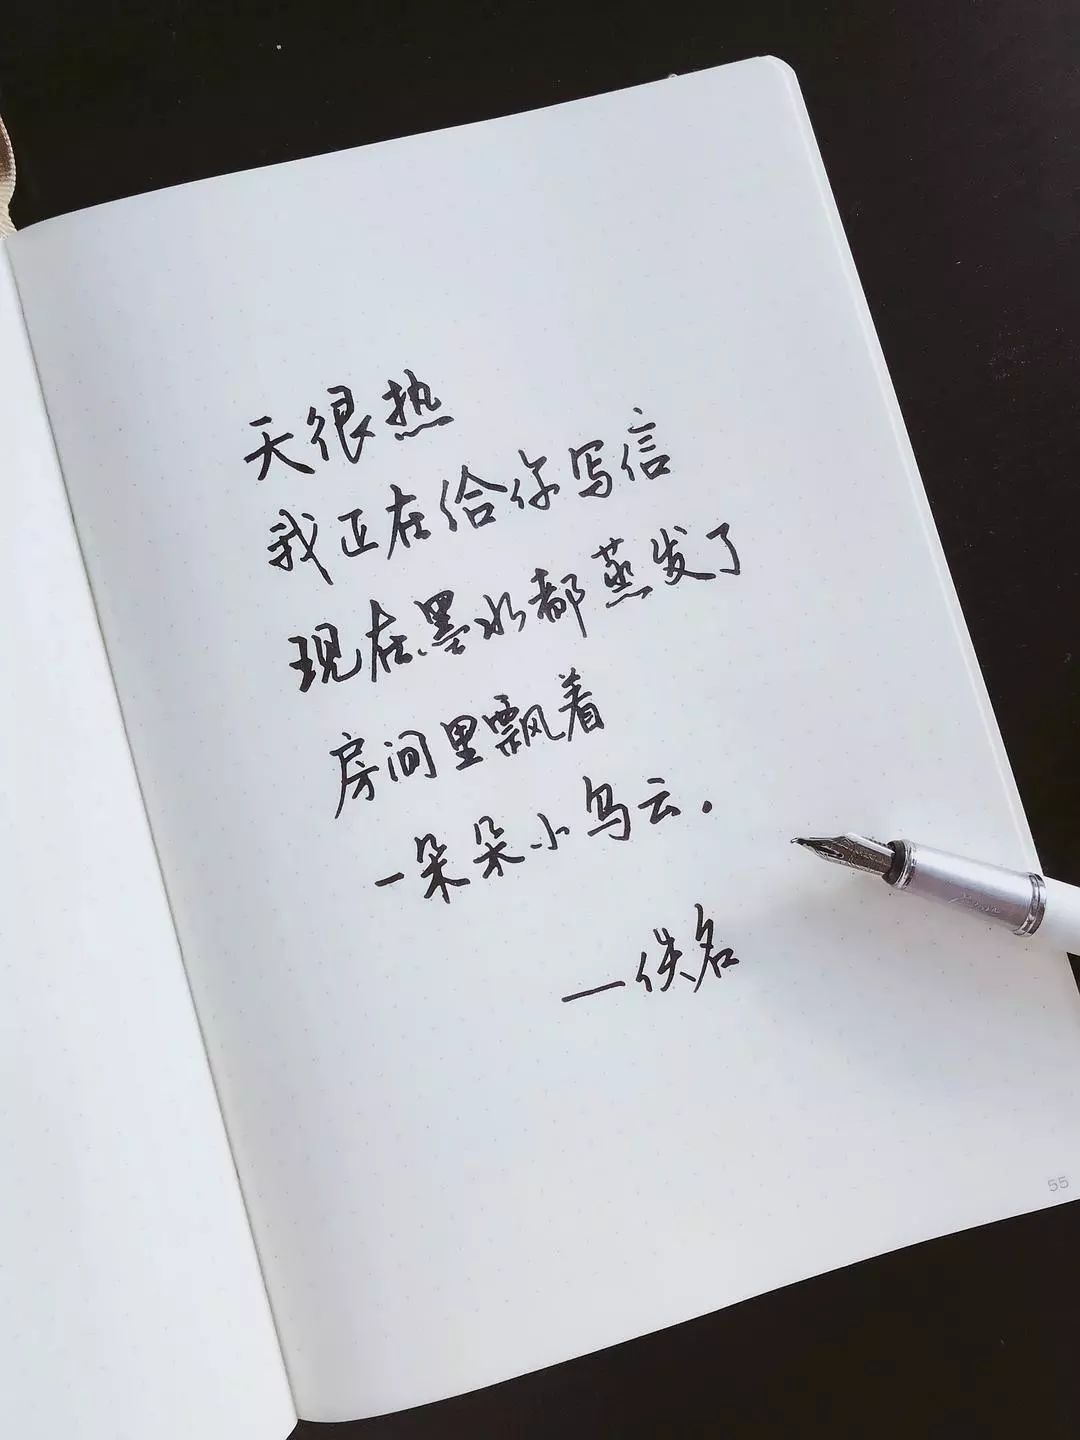 天很热
我正在给你写信
现在墨水都蒸发了
房间里飘着
一朵朵小乌云.
—佚名
55